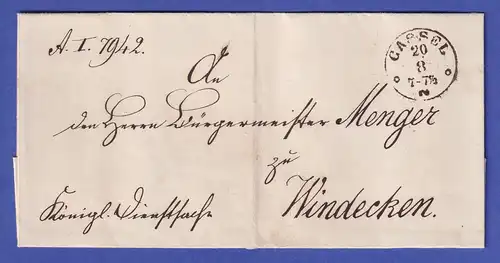 A. I. 7942.
CASSEL
20
8
7-7½
N
An
den Herrn Bürgermeister Menger
zu
Königl. Dienstsache
Windecken.